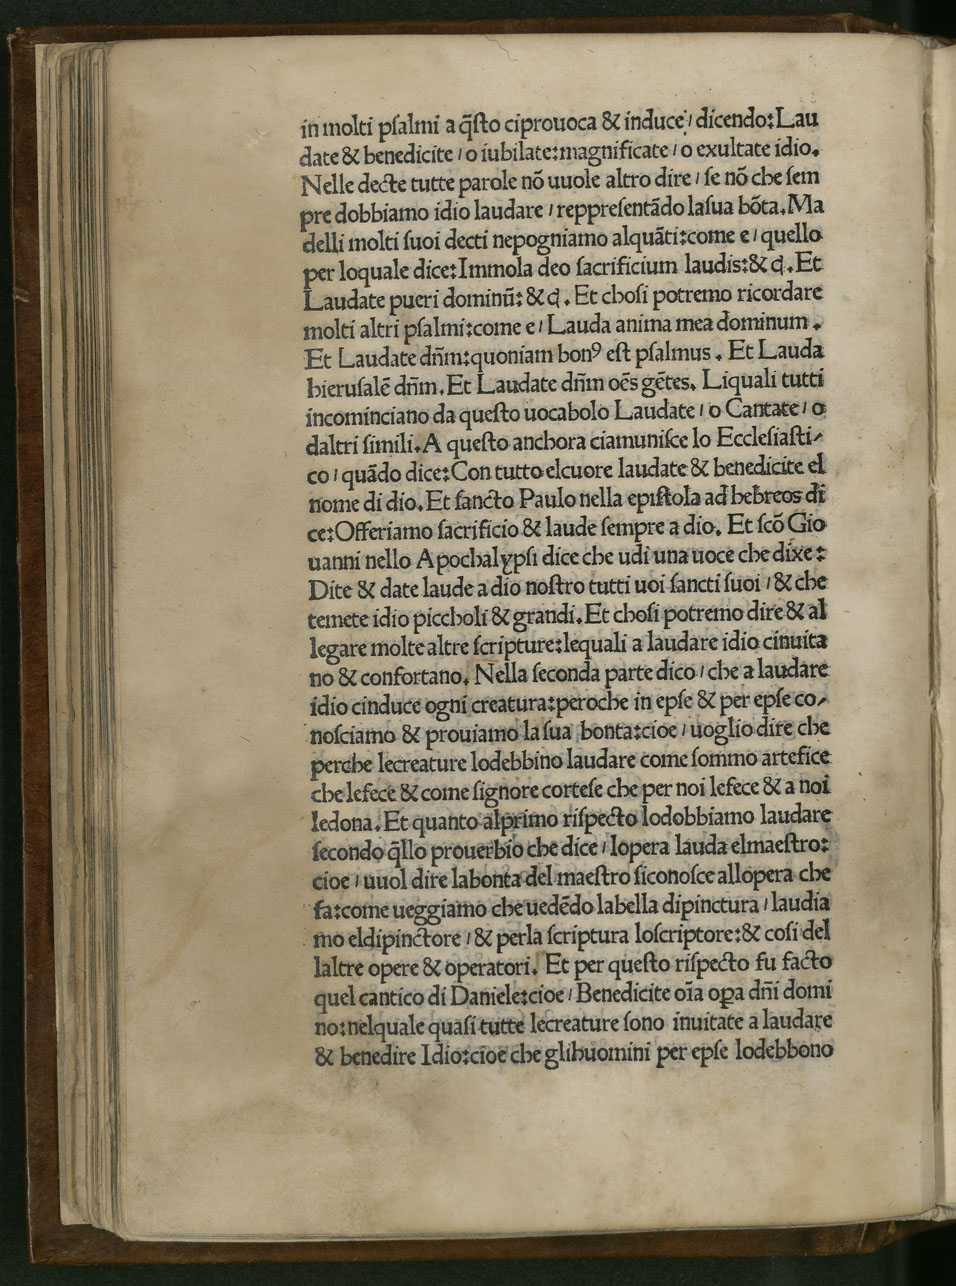 in molti pſalmi a q̃ſto ciprouoca & induce / dicendo: Lau
date & benedicite / o iubilate: magnificate / o exultate idio.
Nelle decte tutte parole nõ uuole altro dire / ſe nõ che ſem
pre dobbiamo idio laudare / reppreſentãdo laſua bõta. Ma
delli molti ſuoi decti nepogniamo alquãti: come e / quello
per loquale dice: Immola deo ſacrificium laudis: & cͥ. Et
Laudate pueri dominũ: & cͥ. Et choſi potremo ricordare
molti altri pſalmi: come e / Lauda anima mea dominum.
Et Laudate dñm: quoniam bonꝰ eſt pſalmus. Et Lauda
hieruſalẽ dñm. Et Laudate dñm oẽs gẽtes. Liquali tutti
incominciano da queſto uocabolo Laudate / o Cantate / o
daltri ſimili. A queſto anchora ciamuniſce lo Eccleſiaſti-
co / quãdo dice: Con tutto elcuore laudate & benedicite el
nome di dio. Et ſancto Paulo nella epiſtola ad hebreos di
ce: Offeriamo ſacrificio & laude ſempre a dio. Et ſcõ Gio
uanni nello Apochalypſi dice che udi una uoce che dixe:
Dite & date laude a dio noſtro tutti uoi ſancti ſuoi / & che
temete idio piccholi & grandi. Et choſi potremo dire & al
legare molte altre ſcripture: lequali a laudare idio cinuita
no & confortano. Nella ſeconda parte dico / che a laudare
idio cinduce ogni creatura: peroche in epſe & per epſe co-
noſciamo & prouiamo la ſua bonta: cioe / uoglio dire che
perche lecreature lodebbino laudare come ſommo artefice
che lefece & come ſignore corteſe che per noi lefece & a noi
ledona. Et quanto alprimo riſpecto lodobbiamo laudare
ſecondo q̃llo prouerbio che dice / lopera lauda elmaeſtro:
cioe / uuol dire labonta del maeſtro ſiconoſce allopera che
fa: come ueggiamo che uedẽdo labella dipinctura / laudia
mo eldipinctore / & perla ſcriptura loſcriptore: & coſi del
laltre opere & operatori. Et per queſto riſpecto fu facto
quel cantico di Daniele: cioe / Benedicite oĩa oꝑa dñi domi
no: nelquale quaſi tutte lecreature ſono inuitate a laudare
& benedire Idio: cioe che glihuomini per epſe lodebbono